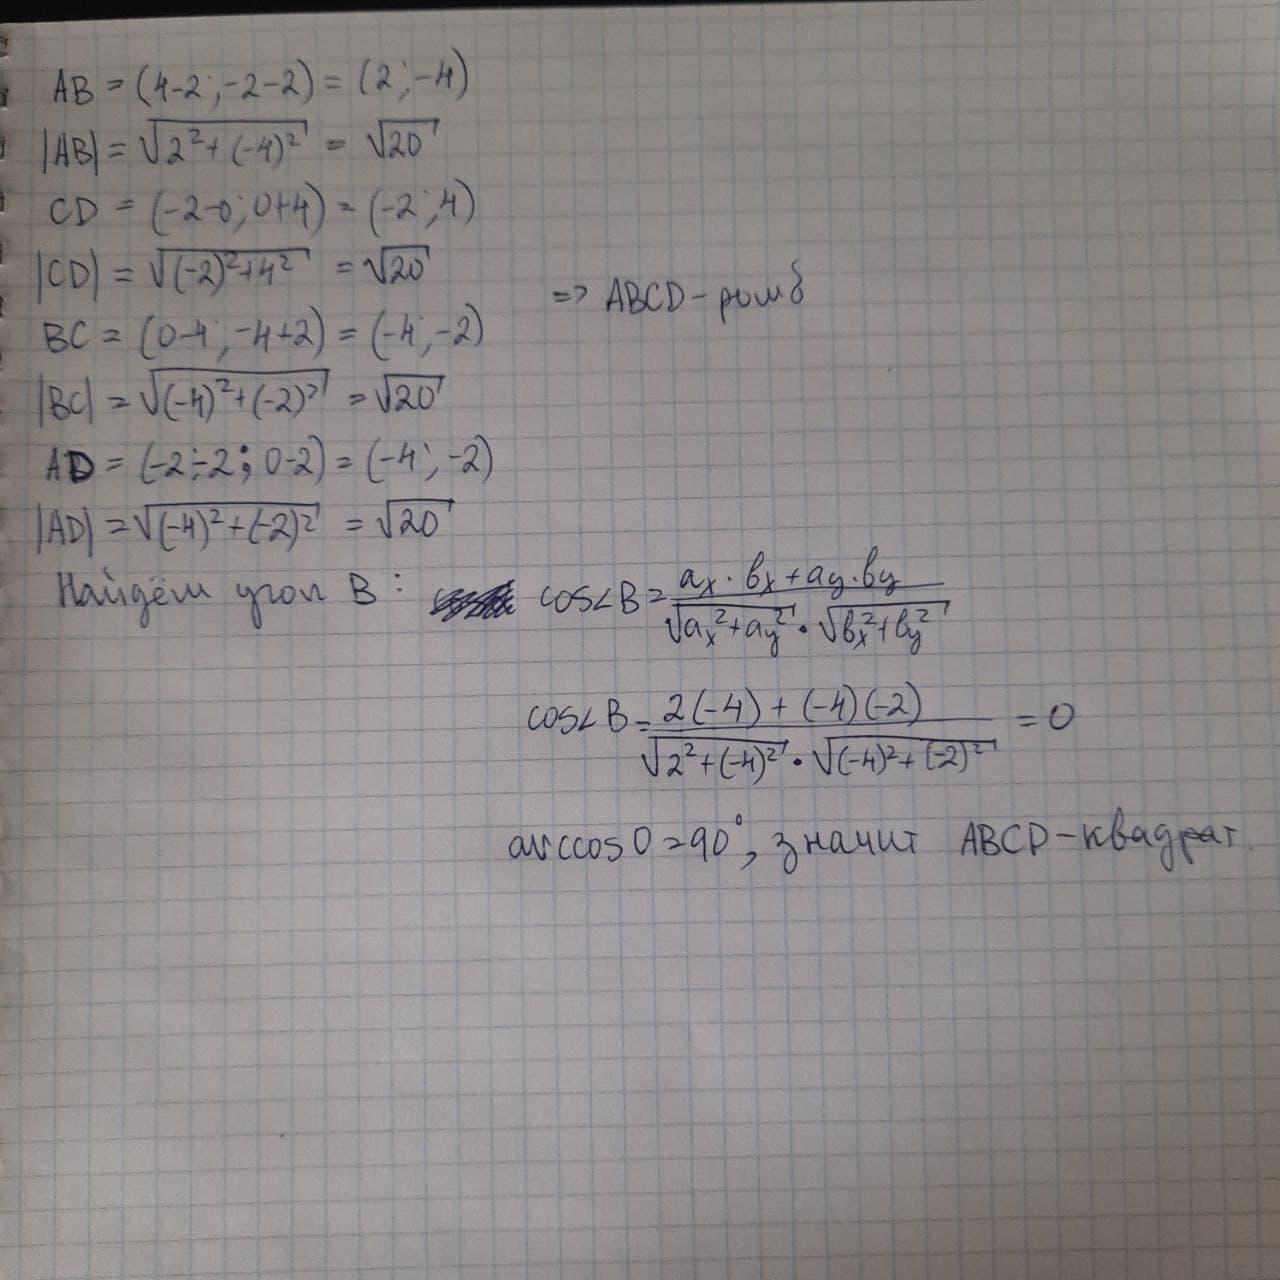 AB = (4-2; -2-2) = (2; -4)
|AB| = √(2²+(-4)²) = √20
CD = (-2-0; 0+4) = (-2; 4)
|CD| = √((-2)²+4²) = √20
=> ABCD - ромб
BC = (0-4; -4+2) = (-4; -2)
|BC| = √((-4)²+(-2)²) = √20
AD = (-2-2; 0-2) = (-4; -2)
|AD| = √((-4)²+(-2)²) = √20
Найдём угол B: cos∠B = (aₓ·bₓ+aᵧ·bᵧ)/(√(aₓ²+aᵧ²)·√(bₓ²+bᵧ²))
cos∠B = (2(-4)+(-4)(-2))/(√(2²+(-4)²)·√((-4)²+(-2)²)) = 0
arccos0=90°, значит ABCD-квадрат.